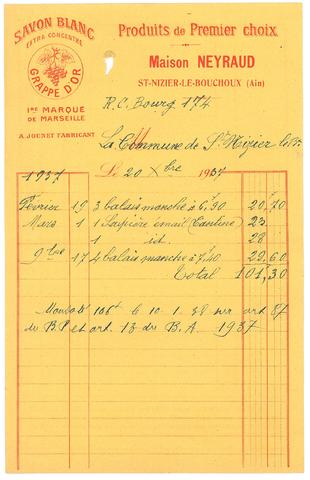 SAVON BLANC
EXTRA CONCENTRÉ
GRAPPE D'OR
1RE MARQUE
DE MARSEILLE
A. JOUNET FABRICANT
Produits de Premier choix
Maison NEYRAUD
ST-NIZIER-LE-BOUCHOUX (Ain)
R.C. Bourg 174
La Commune de St Nizier le Bx
Le 20 Xbre 1937
1937
Février 19 3 balais manche à 6,90 20,70
Mars 1 1 Soupière émail (Cantine) 23
1 id. 28
9bre 17 4 balais manche à 7,40 29,60
Total 101,30
le 10.1.38 sur art 87
du BP et art 13 du B.A 1937